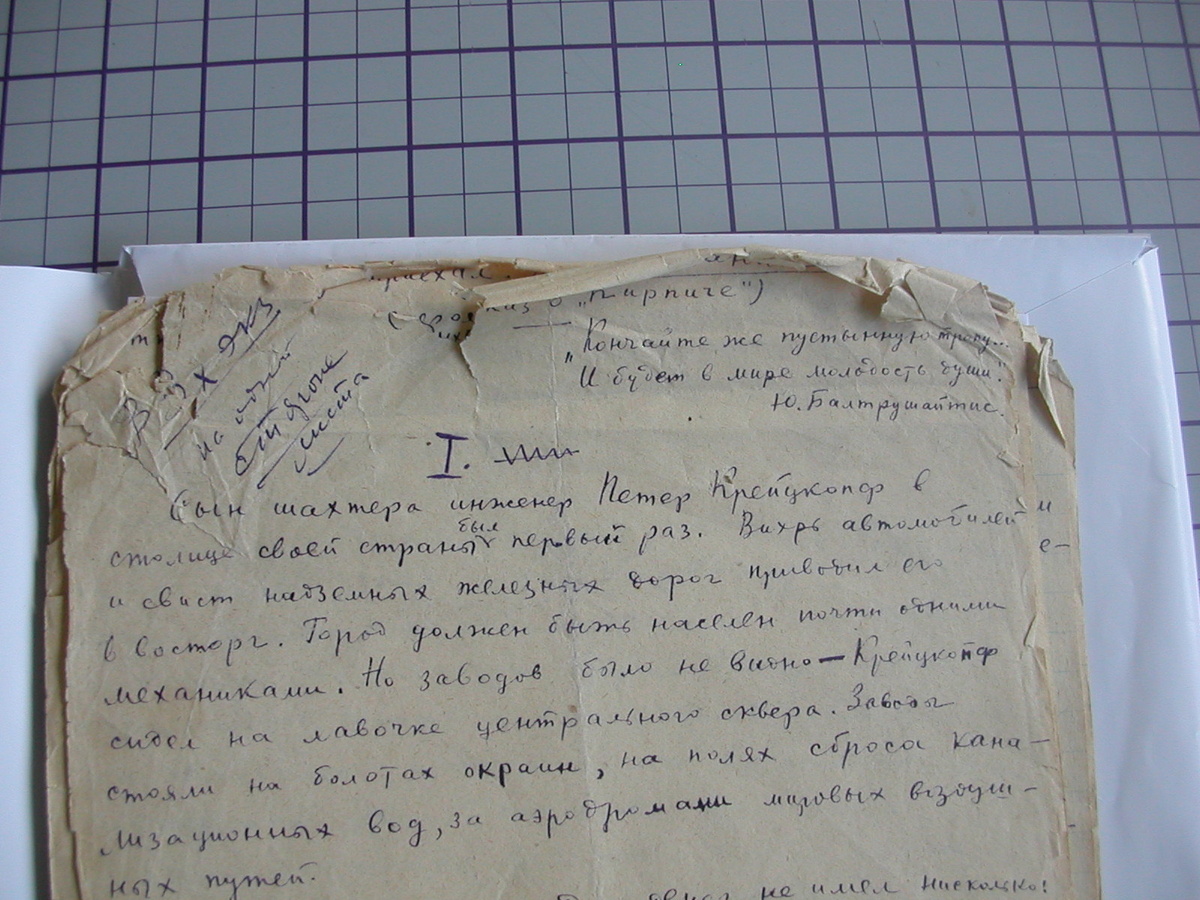 приехал
(рассказ о "Кирпиче")
В 3х экз
на одной
стороне
листа
„Кончайте же пустынную тропу...
И будет в мире молодость души."
Ю. Балтрушайтис.
I.
Сын шахтера инженер Петер Крейцкопф в
столице своей страны был первый раз. Вихрь автомобилей
и свист надземных железных дорог приводил его
в восторг. Город должен быть населен почти одними
механиками. Но заводов было не видно — Крейцкопф
сидел на лавочке центрального сквера. Заводы
стояли на болотах окраин, на полях сброса кана-
лизационных вод, за аэродромами мировых воздуш-
ных путей.
не имел нисколько!